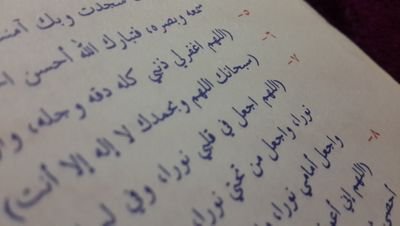 سجدت وبك آمنت
سمعه وبصره، فتبارك الله أحسن
٥- (اللهم اغفرلي ذنبي كله دقه وجله،
٦- (سبحانك اللهم وبحمدك لا إله إلا أنت)
٧- (اللهم اجعل في قلبي نورا، وفي
نورا، واجعل من تحتي نورا،
واجعل أمامي نورا،
٨- (اللهم إني